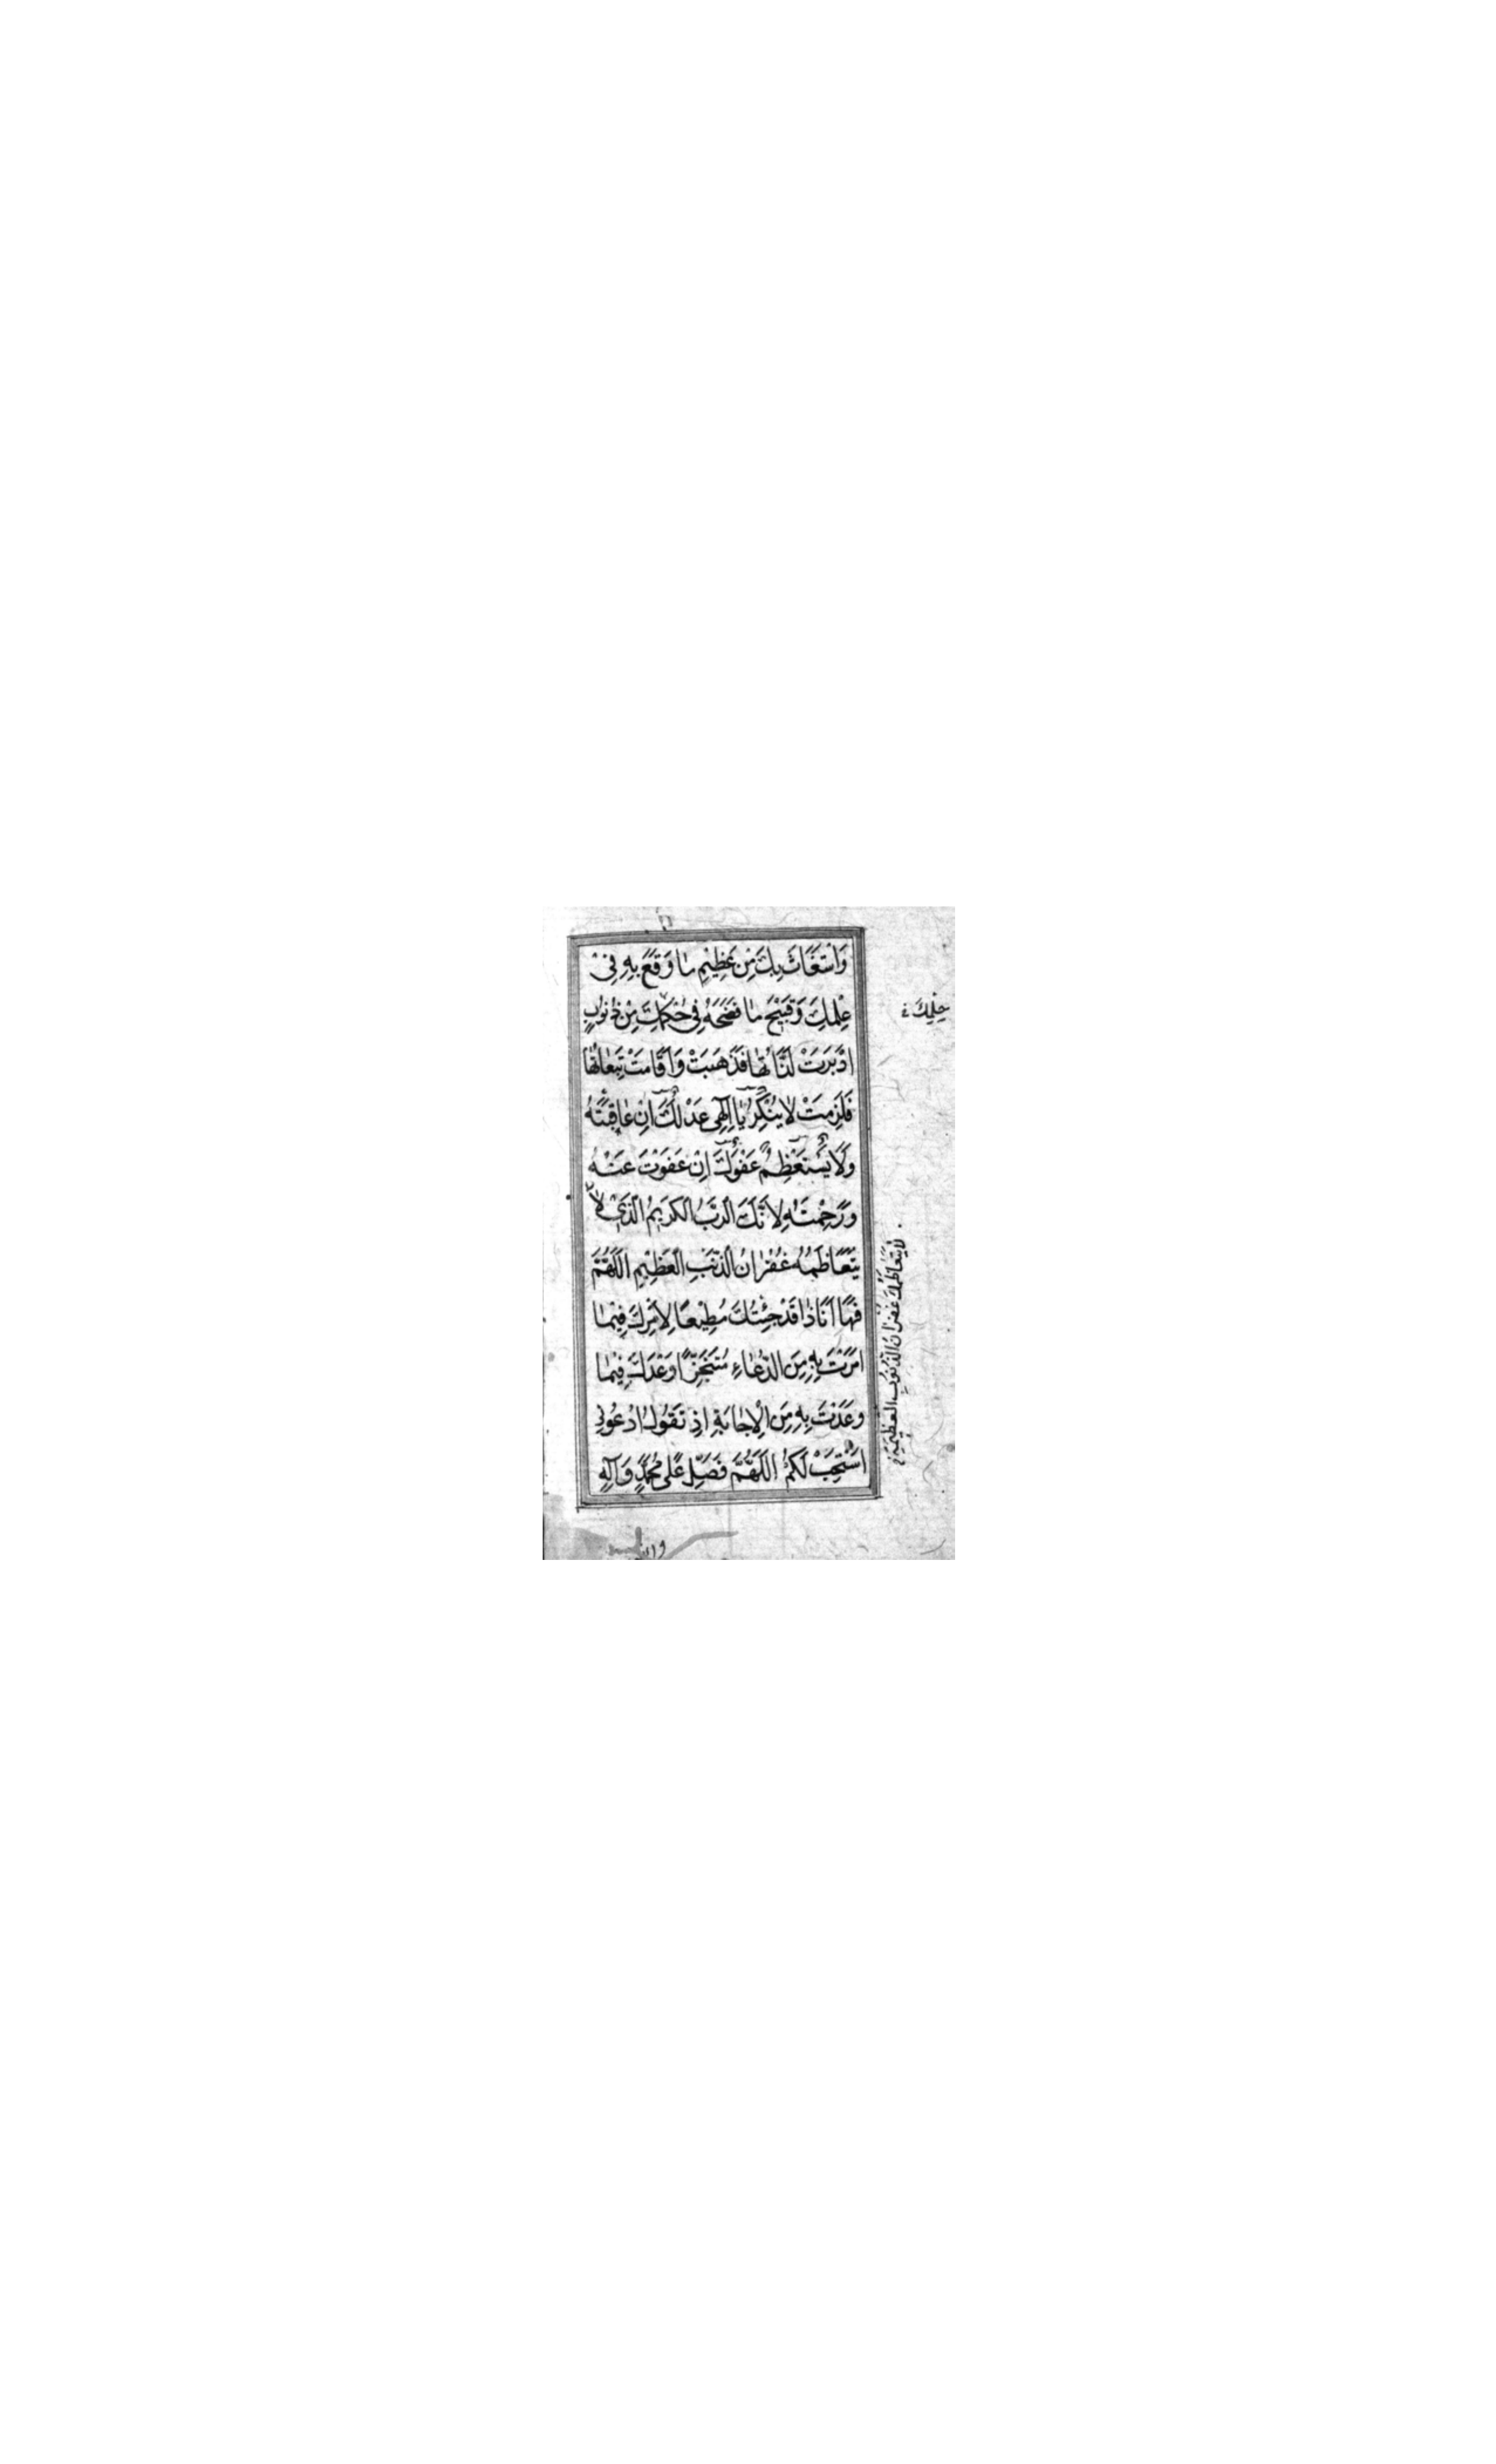 وَاسْتَغَاثَ بِكَ مِنْ عَظِيْمِ مَا وَقَعَ بِهِ فِيْ
عِلْمِكَ وَقَبِيْحِ مَا فَضَحَهُ فِي حُكْمِكَ مِنْ ذُنُوبٍ
اَدْبَرَتْ لَذَّاتُهَا فَذَهَبَتْ وَاَقَامَتْ تَبِعَاتُهَا
فَلَزِمَتْ لَا يُنْكِرُ يَا اِلٰهِي عَدْلَكَ اِنْ عَاقَبْتَهُ
وَلَا يَسْتَعْظِمُ عَفْوَكَ اِنْ عَفَوْتَ عَنْهُ
وَرَحِمْتَهُ لِاَنَّكَ الرَّبُّ الْكَرِيْمُ الَّذِيْ لَا
يَتَعَاظَمُهُ غُفْرَانُ الذَّنْبِ الْعَظِيْمِ اَللّٰهُمَّ
فَهَا اَنَا ذَا قَدْ جِئْتُكَ مُطِيْعًا لِاَمْرِكَ فِيْمَا
اَمَرْتَ بِهِ مِنَ الدُّعَاءِ مُتَنَجِّزًا وَعْدَكَ فِيْمَا
وَعَدْتَ بِهِ مِنَ الْاِجَابَةِ اِذْ تَقُولُ ادْعُونِي
اَسْتَجِبْ لَكُمْ اَللّٰهُمَّ فَصَلِّ عَلٰى مُحَمَّدٍ وَآلِهِ
حِلْمِكَ
لَا يَتَعَاظَمُكَ غُفْرَانُ الذُّنُوبِ الْعَظِيْمَةِ